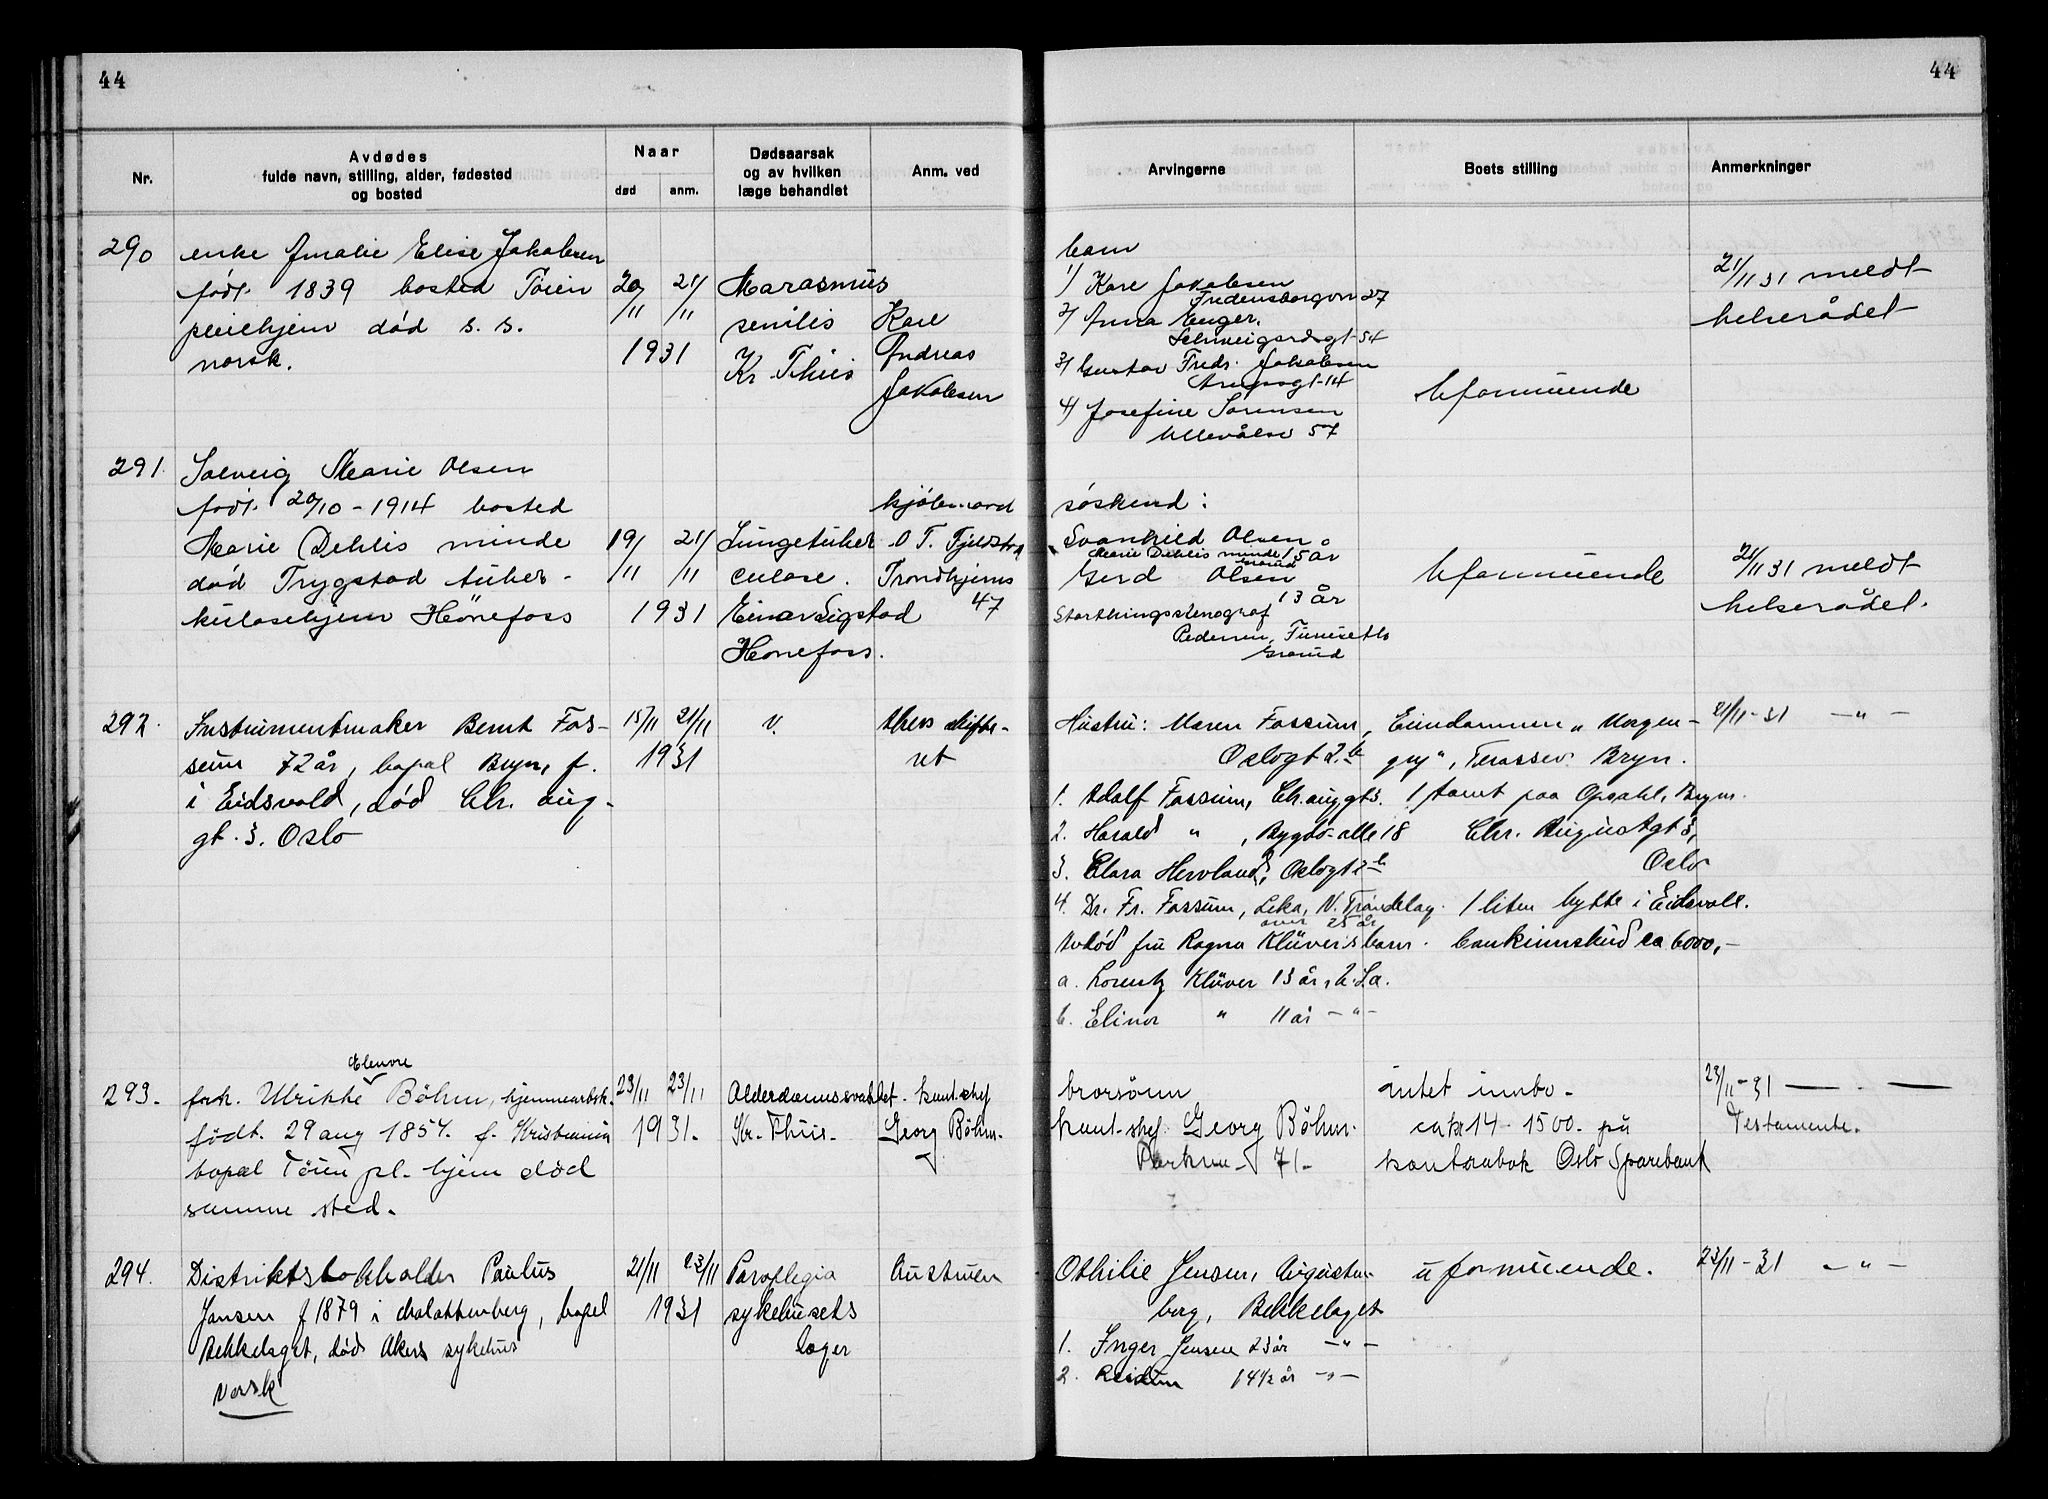 44
44
Nr.
Avdødes
fulde navn, stilling, alder, fødested
og bosted
Naar
død
anm.
Dødsaarsak
og av hvilken
læge behandlet
Anm. ved
Arvingerne
Boets stilling
Anmerkninger
290
enke Amalie Elise Jakobsen
født 1839 bosted Töien
pleiehjem død s. s.
norsk.
20/11 21/11
1931
Marasmus
senilis
Kr Thiis
Kare
Andreas
Jakobsen
barn
1/ Kare Jakobsen
Fredensborgvn 27
2/ Anna Enger.
Schweigaardsgt 54
3/ Gustav Fredr. Jakobsen
Arupsgt 14
4/ Josefine Sørensen
Ullevålsv 57
Uformuende
21/11 31 meldt
helserådet
291.
Solveig Marie Olsen
født 20/10 - 1914 bosted
Marie Dehlis minde
død Trygstad tuber-
kulosehjem Hönefoss
19/11 21/11
1931
Lungetuber
culose.
Einar Sigstad
Hönefoss.
kjöbmand
O T. Fjeldstad
Trondhjems
47
söskend:
Svanhild Olsen
Marie Dehlis minde 15 år
Grorud
Gerd Olsen
13 år
Storthingsstenograf
Pedersen, Furuseth
Grorud
Uformuende
21/11 31 meldt
helserådet.
292.
Instrumentmaker Bernt Fos-
sum 72 år, bopal Bryn, f.
i Eidsvold, død Chr. aug-
gt. 3. Oslo
15/11 21/11
1931
v.
Akers skifte-
ret
Hustru: Maren Fossum,
Oslogt 2b
1. Adolf Fossum, Ch. aug gt 3.
2. Harald " , Bygdö alle 18
3. Clara Hervland, Oslogt 2b
4. Dr. Fr. Fossum, Leka, N. Tröndelag.
over 25 år
Avdød fru Ragna Klüvers barn.
a. Lorentz Klüver 13 år,
b. Elinor " 11 år - " -
Eiendommen "Morgen-
gry", Terassev. Bryn.
1 tomt paa Opsahl, Bryn.
Chr. Augustgt 3,
Oslo
1 liten hytte i Eidsvoll.
bankinnskud ca 6000,-
21/11-31 - " -
293.
Elenore
frk. Ulrikke Böhm, hjemmearbsk.
födt. 29 aug 1854. f. Kristiania
bopæl Töien pl. hjem död
samme sted.
23/11 23/11
1931.
Alderdomssvakhet.
Kr. Thiis.
kont. chef
Georg Böhm.
brorsönn
kont. chef. Georg Böhm.
Parkvn. 71.
intet innbo.
ca kr 14 - 1500. på
kontrabok Oslo Sparebank
23/11-31 — . —
Testamente.
294.
Distriktsbokholder Paulus
Jansen f 1879 i
bopel
Bekkelaget, død Akers sykehus
norsk
21/11 23/11
1931
Paraplegia
sykehusets
læger
Enstruen
Othilie Jensen, Augusten-
borg, Bekkelaget
1. Inger Jensen 23 år - " -
2. Reidun 14 1/2 år - " -
uformuende.
23/11-31 - " -